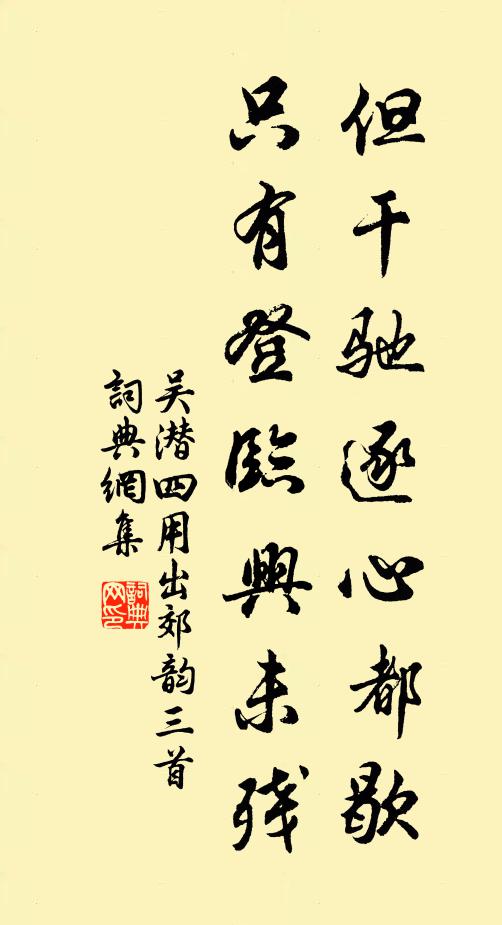 但干驰逐心都歇
只有登臨興未残
吴潜四用出郊韵三首
詞典網集
詞典网印